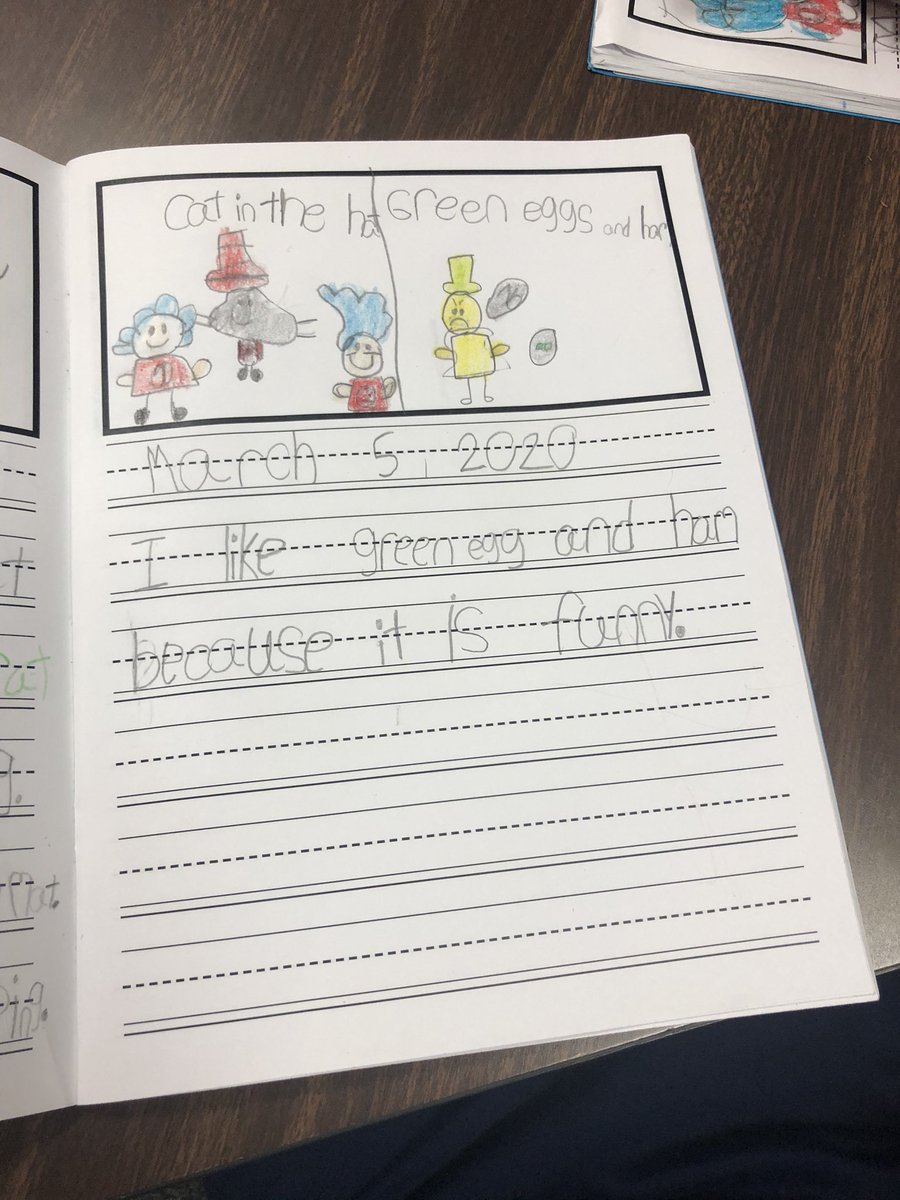 cat in the hat
Green eggs and ham
March 5, 2020
I like green egg and ham
because it is funny.
at
mat.